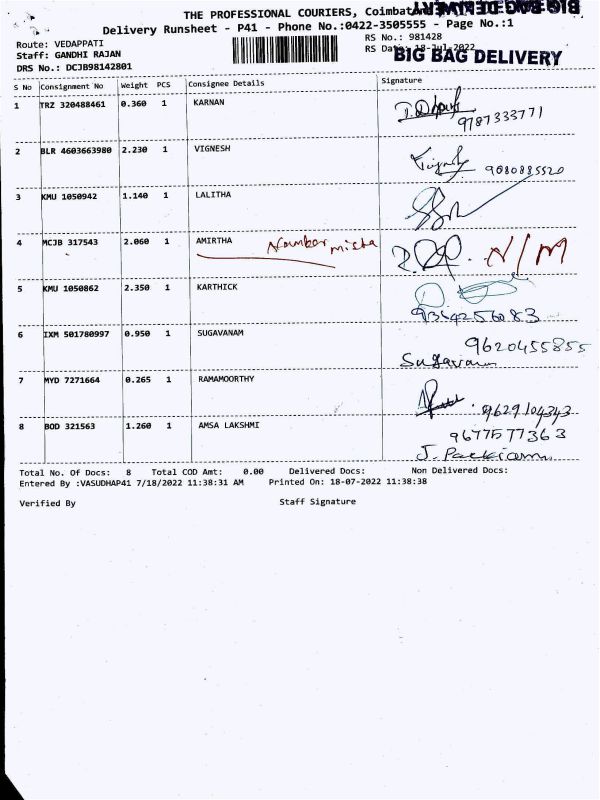 THE PROFESSIONAL COURIERS, Coimbatore
BIG BAG DELIVERY
Delivery Runsheet - P41 - Phone No.:0422-3505555 - Page No.:1
Route: VEDAPPATI
RS No.: 981428
Staff: GANDHI RAJAN
RS Date: 18-Jul-2022
BIG BAG DELIVERY
DRS No.: DCJB98142801
S No Consignment No Weight PCS Consignee Details Signature
1 TRZ 320488461 0.360 1 KARNAN
9787333771
2 BLR 4603663980 2.230 1 VIGNESH
9080885520
3 KMU 1050942 1.140 1 LALITHA
4 MCJB 317543 2.060 1 AMIRTHA Number N/M
5 KMU 1050862 2.350 1 KARTHICK
9364256083
6 IXM 501780997 0.950 1 SUGAVANAM
9620455855
7 MYD 7271664 0.265 1 RAMAMOORTHY
9629104343
8 BOD 321563 1.260 1 AMSA LAKSHMI
9677577363
Total No. Of Docs: 8 Total COD Amt: 0.00 Delivered Docs: Non Delivered Docs:
Entered By :VASUDHAP41 7/18/2022 11:38:31 AM Printed On: 18-07-2022 11:38:38
Verified By Staff Signature